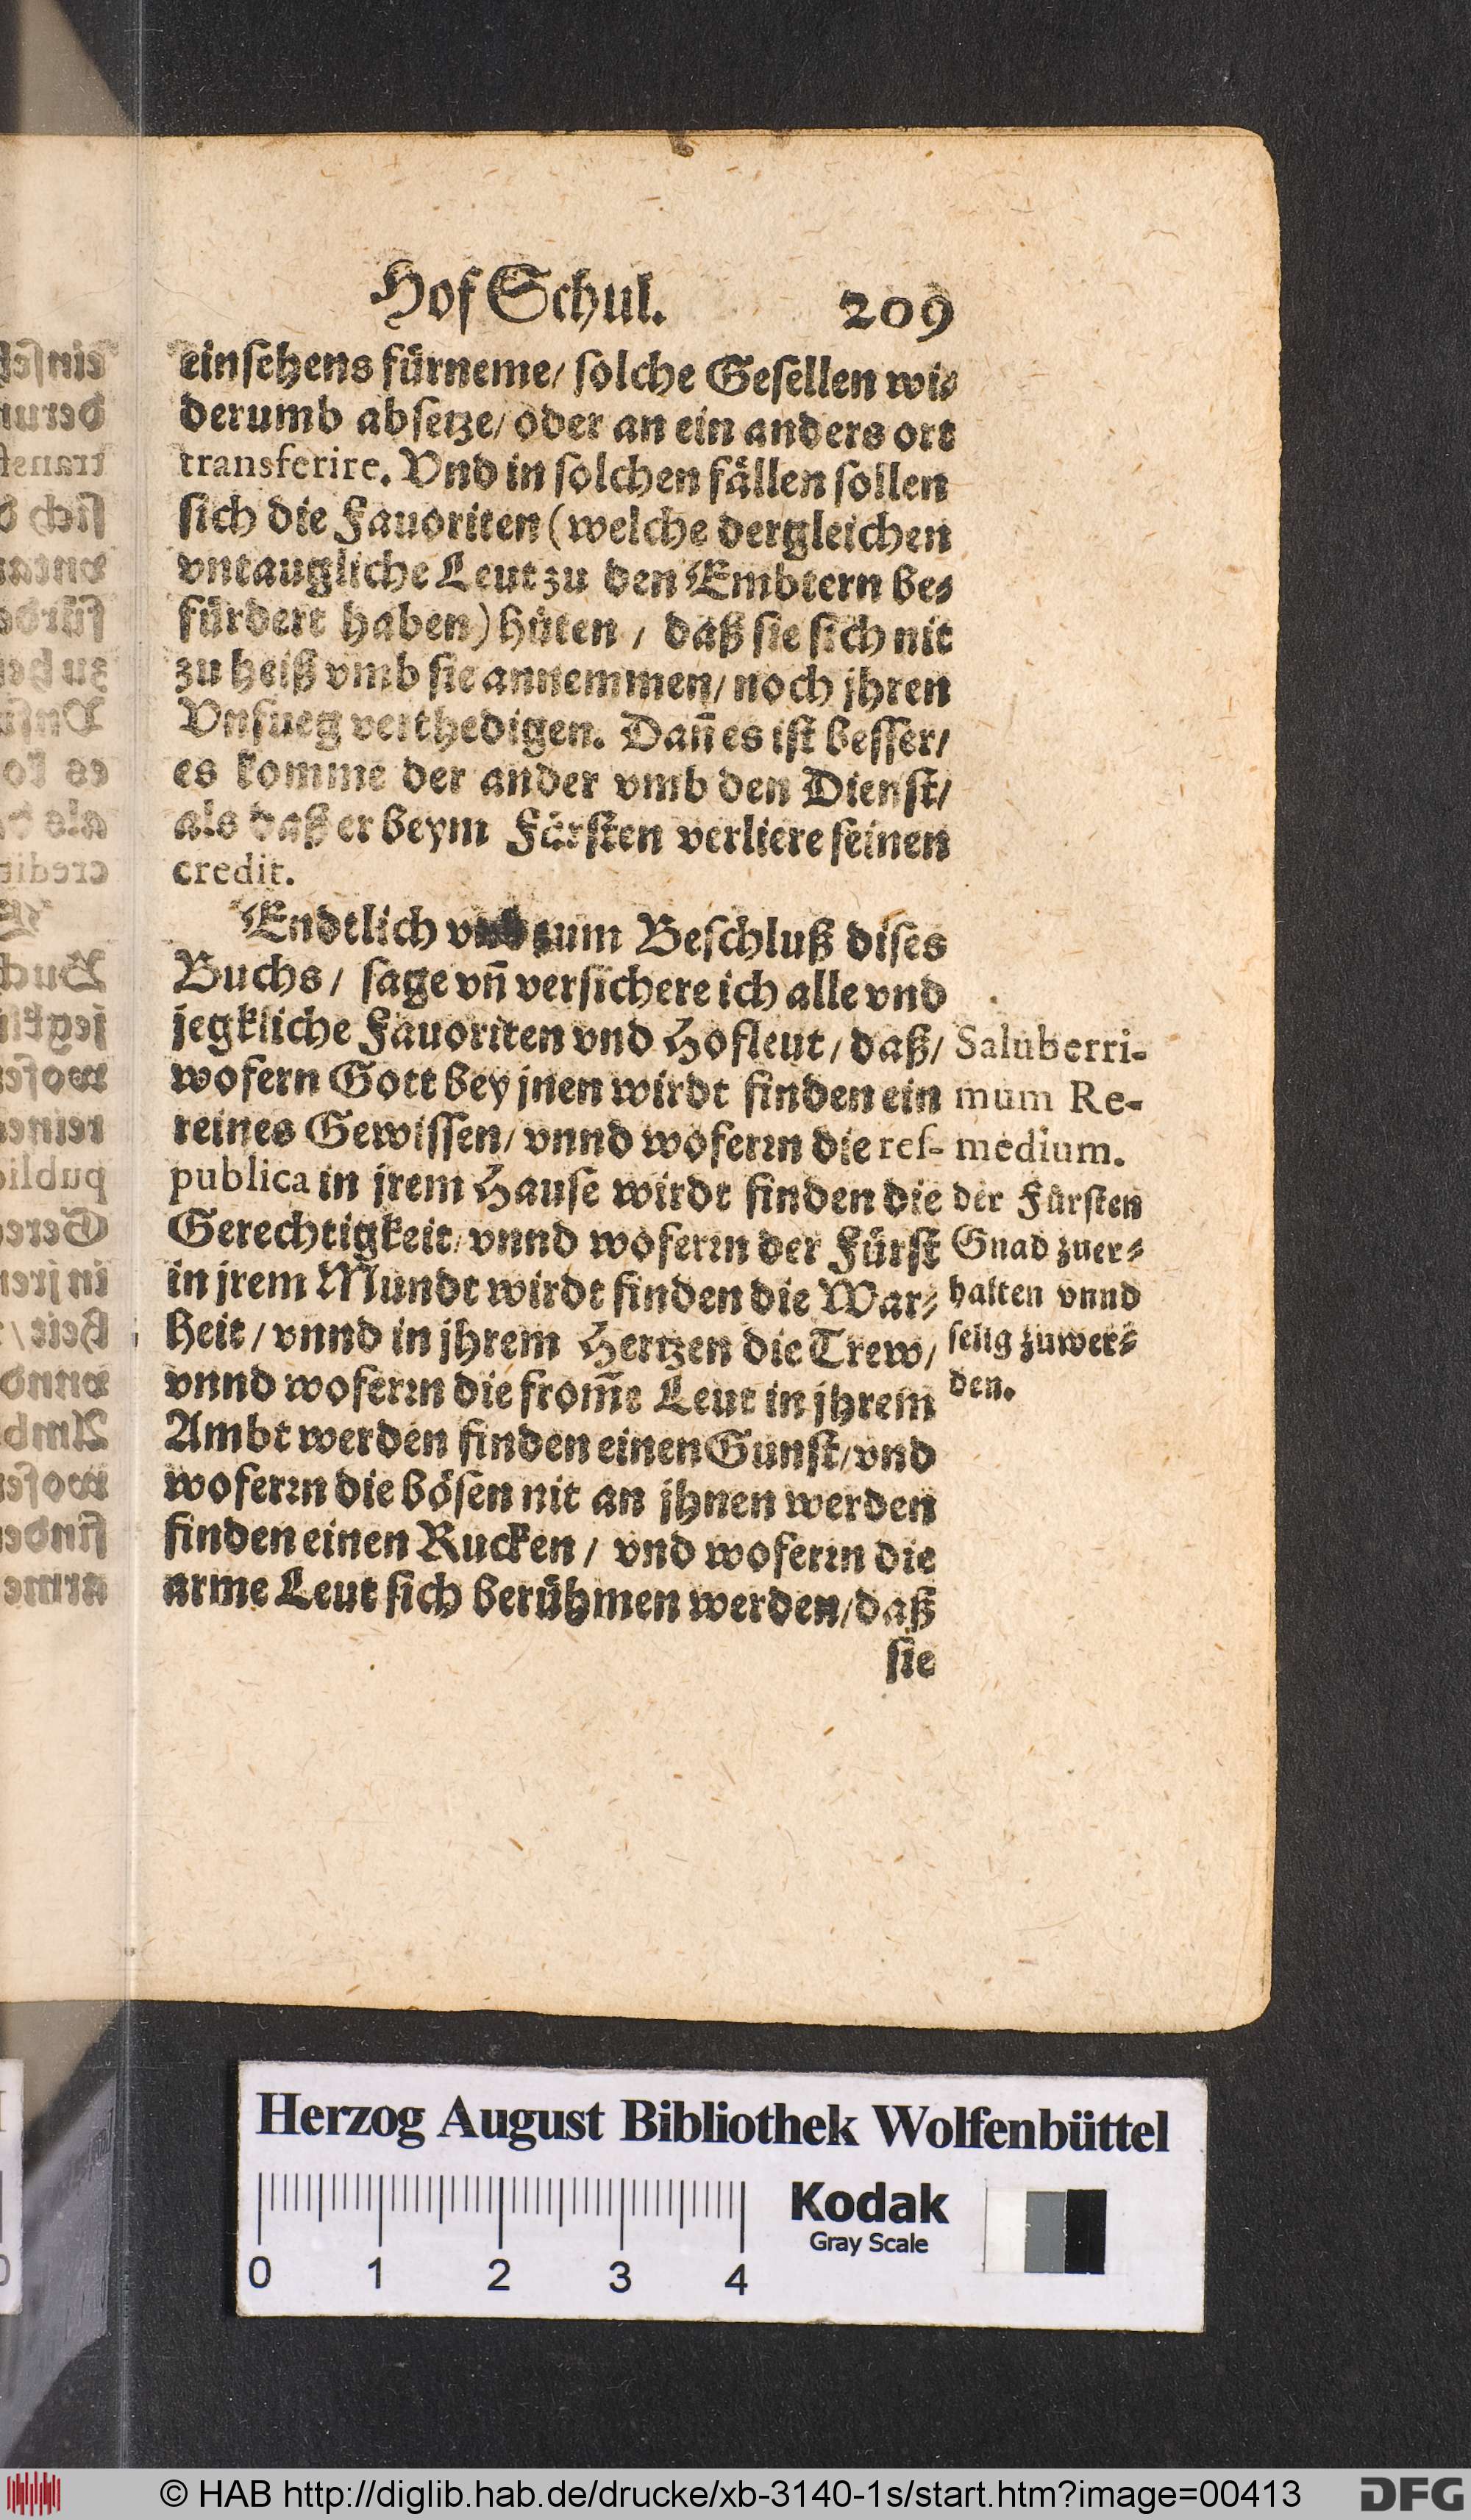 Hof Schul. 209
einsehens fürneme/ solche Gesellen wi⸗
derumb absetze/ oder an ein anders ort
transferire. Vnd in solchen fällen sollen
sich die Fauoriten (welche dergleichen
vntaugliche Leut zu den Embtern be⸗
fürdert haben) hüten / daß sie sich nit
zu heiß vmb sie annemmen/ noch jhren
Vnfueg verthedigen. Dañ es ist besser/
es komme der ander vmb den Dienst/
als daß er beym Fürsten verliere seinen
credit.
Endtlich vnd zum Beschluß dises
Buchs / sage vñ versichere ich alle vnd
jegkliche Fauoriten vnd Hofleut / daß/
wofern Gott bey jnen wirdt finden ein
reines Gewissen/ vnnd woferrn die res-
publica in jrem Hause wirdt finden die
Gerechtigkeit/ vnnd woferrn der Fürst
in jrem Mundt wirdt finden die War⸗
heit / vnnd in jhrem Hertzen die Trew/
vnnd woferrn die from̃e Leut in jhrem
Ambt werden finden einen Gunst/ vnd
woferrn die bösen nit an jhnen werden
finden einen Rucken / vnd woferrn die
arme Leut sich berühmen werden/ daß
sie
Saluberri-
mum Re-
medium.
der Fürsten
Gnad zuer⸗
halten vnnd
selig zuwer⸗
den.
Herzog August Bibliothek Wolfenbüttel
Kodak
Gray Scale
0 1 2 3 4
© HAB http://diglib.hab.de/drucke/xb-3140-1s/start.htm?image=00413
DFG